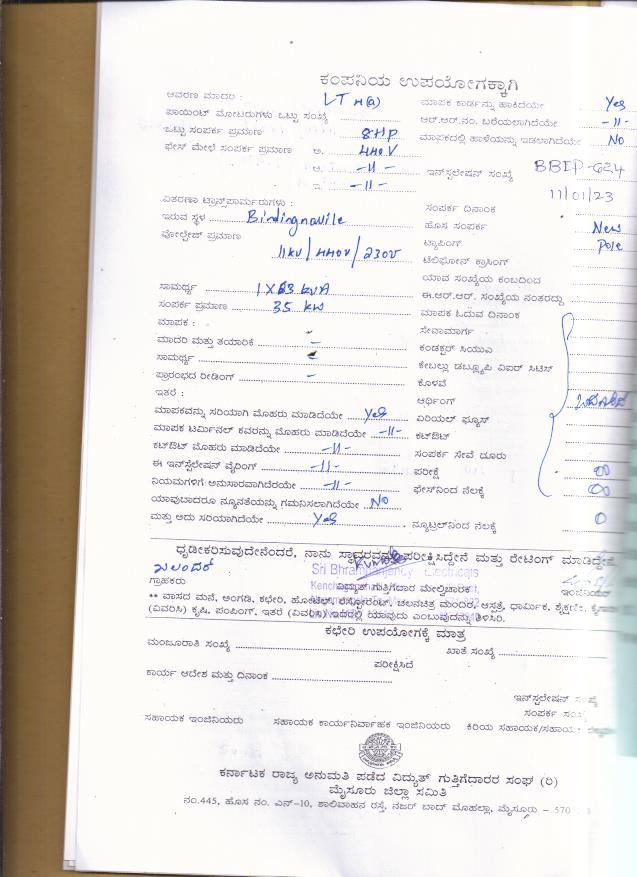 ಕಂಪನಿಯ ಉಪಯೋಗಕ್ಕಾಗಿ
ಆವರಣ ಮಾದರಿ : LT 4(a) ಮಾಪಕ ಕಾರ್ಡನ್ನು ಹಾಕಿದೆಯೇ Yes
ಪಾಯಿಂಟ್ ಮೋಟರುಗಳು ಒಟ್ಟು ಸಂಖ್ಯೆ ಆರ್.ಆರ್.ನಂ. ಬರೆಯಲಾಗಿದೆಯೇ -11-
ಒಟ್ಟು ಸಂಪರ್ಕ ಪ್ರಮಾಣ 8HP ಮಾಪಕದಲ್ಲಿ ಹಾಳೆಯನ್ನು ಇಡಲಾಗಿದೆಯೇ NO
ಫೇಸ್ ಮೇಳೆ ಸಂಪರ್ಕ ಪ್ರಮಾಣ ಅ. 440V
ಆ. -11- ಇನ್‌ಸ್ಟಲೇಷನ್ ಸಂಖ್ಯೆ BBIP-624
ಇ. -11- 11/01/23
ವಿತರಣಾ ಟ್ರಾನ್ಸ್‌ಪಾರ್ಮರುಗಳು : ಸಂಪರ್ಕ ದಿನಾಂಕ
ಇರುವ ಸ್ಥಳ Bindingnavile ಹೊಸ ಸಂಪರ್ಕ New
ವೋಲ್ಟೇಜ್ ಪ್ರಮಾಣ 11KV/440V/230V ಟ್ಯಾಪಿಂಗ್ Pole
ಟೆಲಿಫೋನ್ ಕ್ರಾಸಿಂಗ್
ಯಾವ ಸಂಖ್ಯೆಯ ಕಂಬದಿಂದ
ಸಾಮರ್ಥ್ಯ 1X63 KVA ಈ.ಆರ್.ಆರ್. ಸಂಖ್ಯೆಯ ನಂತರದ್ದು
ಸಂಪರ್ಕ ಪ್ರಮಾಣ 35 KW ಮಾಪಕ ಓದುವ ದಿನಾಂಕ
ಮಾಪಕ : ಸೇವಾಮಾರ್ಗ
ಮಾದರಿ ಮತ್ತು ತಯಾರಿಕೆ - ಕಂಡಕ್ಟರ್ ಸಿಯುಎ
ಸಾಮರ್ಥ್ಯ ಕೇಬಲ್ಲು ಡಬ್ಲ್ಯೂಪಿ ವಿಐರ್ ಸಿಟಿಸ್
ಪ್ರಾರಂಭದ ರೀಡಿಂಗ್ - ಕೊಳವೆ
ಇತರೆ : ಆರ್ಥಿಂಗ್
ಮಾಪಕವನ್ನು ಸರಿಯಾಗಿ ಮೊಹರು ಮಾಡಿದೆಯೇ Yes ಏರಿಯಲ್ ಫ್ಯೂಸ್
ಮಾಪಕ ಟರ್ಮಿನಲ್ ಕವರನ್ನು ಮೊಹರು ಮಾಡಿದೆಯೇ -11- ಕಟ್‌ಔಟ್
ಕಟ್‌ಔಟ್ ಮೊಹರು ಮಾಡಿದೆಯೇ -11- ಸಂಪರ್ಕ ಸೇವೆ ದೂರು
ಈ ಇನ್‌ಸ್ಟಲೇಷನ್ ವೈರಿಂಗ್ -11- ಪರೀಕ್ಷೆ
ನಿಯಮಗಳಿಗೆ ಅನುಸಾರವಾಗಿದೆರೆಯೇ -11- ಫೇಸ್‌ನಿಂದ ನೆಲಕ್ಕೆ
ಯಾವುಬಾದರೂ ನ್ಯೂನತೆಯನ್ನು ಗಮನಿಸಲಾಗಿದೆಯೇ NO
ಮತ್ತು ಅದು ಸರಿಯಾಗಿದೆಯೇ Yes ನ್ಯೂಟ್ರಲ್‌ನಿಂದ ನೆಲಕ್ಕೆ 0
ಧೃಡೀಕರಿಸುವುದೇನೆಂದರೆ, ನಾನು ಸ್ಥಾವರವನ್ನು ಪರೀಕ್ಷಿಸಿದ್ದೇನೆ ಮತ್ತು ರೇಟಿಂಗ್ ಮಾಡಿದ್ದೇನೆ
Electricals
ಗ್ರಾಹಕರು ವಿದ್ಯುತ್ ಗುತ್ತಿಗೆದಾರ ಮೇಲ್ವಿಚಾರಕ
** ವಾಸದ ಮನೆ, ಅಂಗಡಿ, ಕಛೇರಿ, ಹೋಟೆಲ್, ರೆಸ್ಟೋರೆಂಟ್, ಚಲನಚಿತ್ರ ಮಂದಿರ, ಆಸ್ಪತ್ರೆ, ಧಾರ್ಮಿಕ, ಶೈಕ್ಷಣಿಕ,
(ವಿವರಿಸಿ) ಕೃಷಿ, ಪಂಪಿಂಗ್, ಇತರೆ (ವಿವರಿಸಿ) ಇದರಲ್ಲಿ ಯಾವುದು ಎಂಬುವುದನ್ನು ತಿಳಿಸಿರಿ.
ಕಛೇರಿ ಉಪಯೋಗಕ್ಕೆ ಮಾತ್ರ
ಮಂಜೂರಾತಿ ಸಂಖ್ಯೆ ಖಾತೆ ಸಂಖ್ಯೆ
ಪರೀಕ್ಷಿಸಿದೆ
ಕಾರ್ಯ ಆದೇಶ ಮತ್ತು ದಿನಾಂಕ
ಇನ್‌ಸ್ಟಲೇಷನ್
ಸಂಪರ್ಕ
ಸಹಾಯಕ ಇಂಜಿನಿಯರು ಸಹಾಯಕ ಕಾರ್ಯನಿರ್ವಾಹಕ ಇಂಜಿನಿಯರು ಕಿರಿಯ ಸಹಾಯಕ/ಸಹಾಯಕ
ಕರ್ನಾಟಕ ರಾಜ್ಯ ಅನುಮತಿ ಪಡೆದ ವಿದ್ಯುತ್ ಗುತ್ತಿಗೆದಾರರ ಸಂಘ (ರಿ)
ಮೈಸೂರು ಜಿಲ್ಲಾ ಸಮಿತಿ
ನಂ.445, ಹೊಸ ನಂ. ಎನ್-10, ಶಾಲಿವಾಹನ ರಸ್ತೆ, ನಜರ್ ಬಾದ್ ಮೊಹಲ್ಲಾ, ಮೈಸೂರು - 570